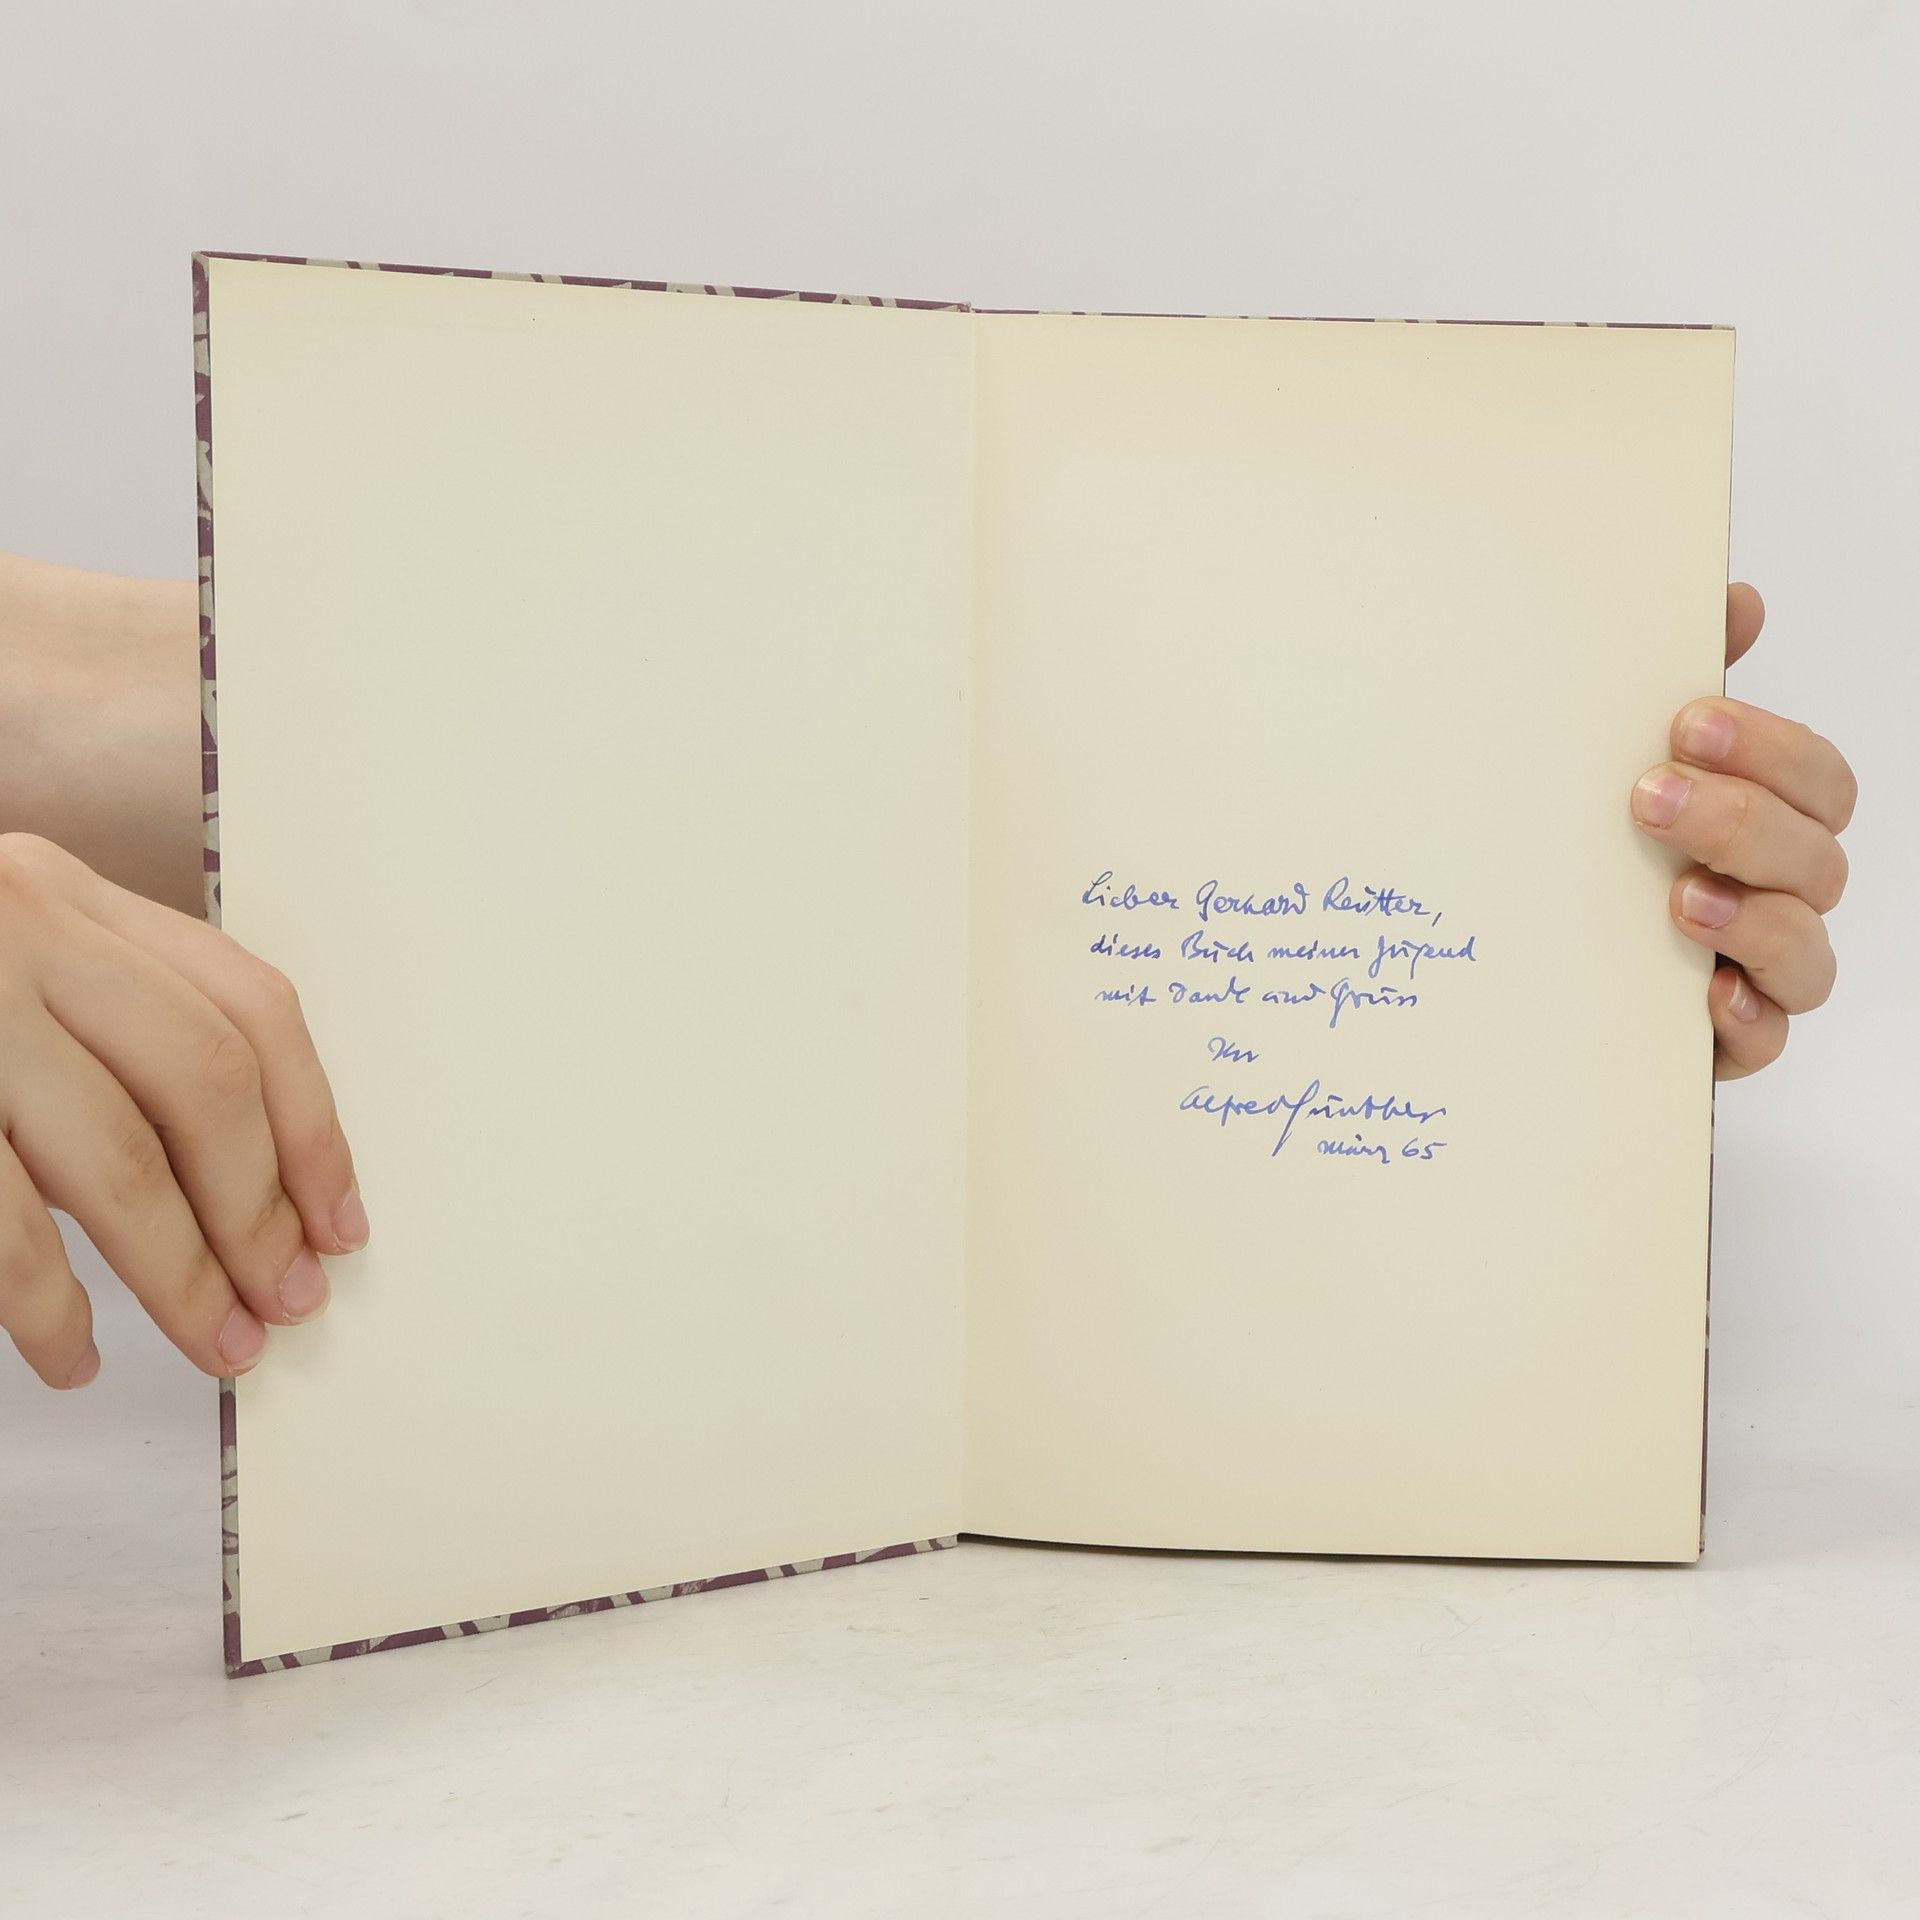 Lieber Gerhard Reutter,
dieses Buch meiner Jugend
mit Dank und Gruss
Ihr
Alfred Günther
März 65